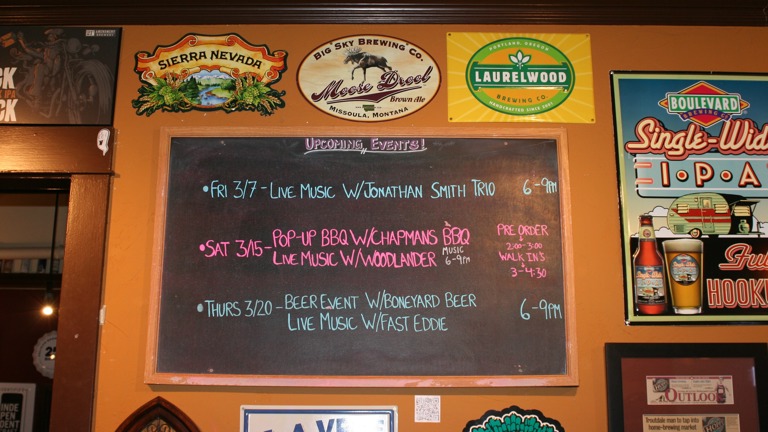 CK
CK
SIERRA NEVADA
BIG SKY BREWING CO.
Moose Drool
Brown Ale
MISSOULA, MONTANA
PORTLAND, OREGON
LAURELWOOD
BREWING CO.
HANDCRAFTED SINCE 2001
BOULEVARD
BREWING CO.
Single-Wid
I·P·A
HOOK
UPCOMING EVENTS!
•FRI 3/7-LIVE MUSIC W/JONATHAN SMITH TRIO 6-9PM
•SAT 3/15-POP-UP BBQ W/CHAPMANS BBQ
LIVE MUSIC W/WOODLANDER
MUSIC
6-9PM
PRE ORDER
2:00-3:00
WALK IN'S
3-4:30
•THURS 3/20-BEER EVENT W/BONEYARD BEER
LIVE MUSIC W/FAST EDDIE
6-9PM
OUTLOO
Troutdale man to tap into
home-brewing market
INDE
PEN
DENT